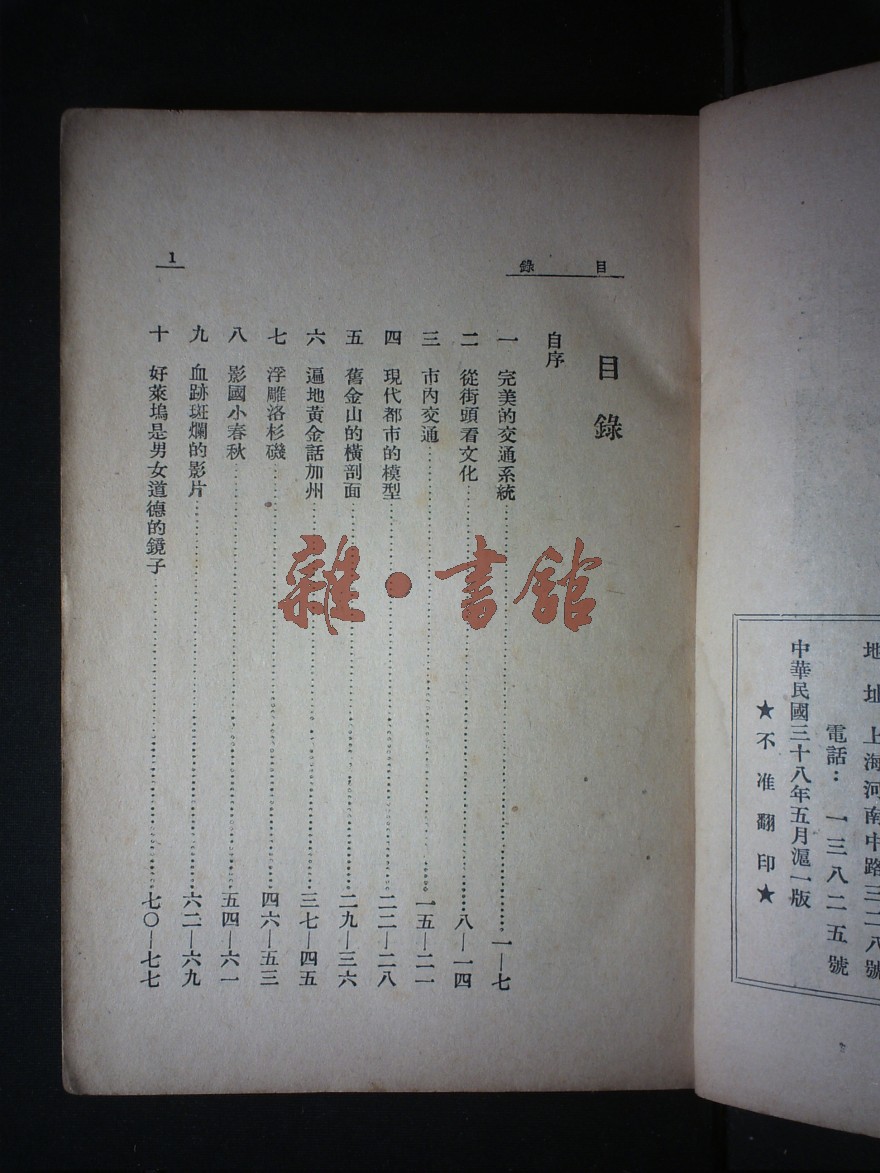 地址上海河南中路三二八號
電話：一三八二五號
中華民國三十八年五月滬一版
★不准翻印★
目錄
1
目錄
自序
一 完美的交通系統 一—七
二 從街頭看文化 八—一四
三 市內交通 一五—二一
四 現代都市的模型 二二—二八
五 舊金山的橫剖面 二九—三六
六 遍地黃金話加州 三七—四五
七 浮雕洛杉磯 四六—五三
八 影國小春秋 五四—六一
九 血跡斑斕的影片 六二—六九
十 好萊塢是男女道德的鏡子 七〇—七七
雜·書館